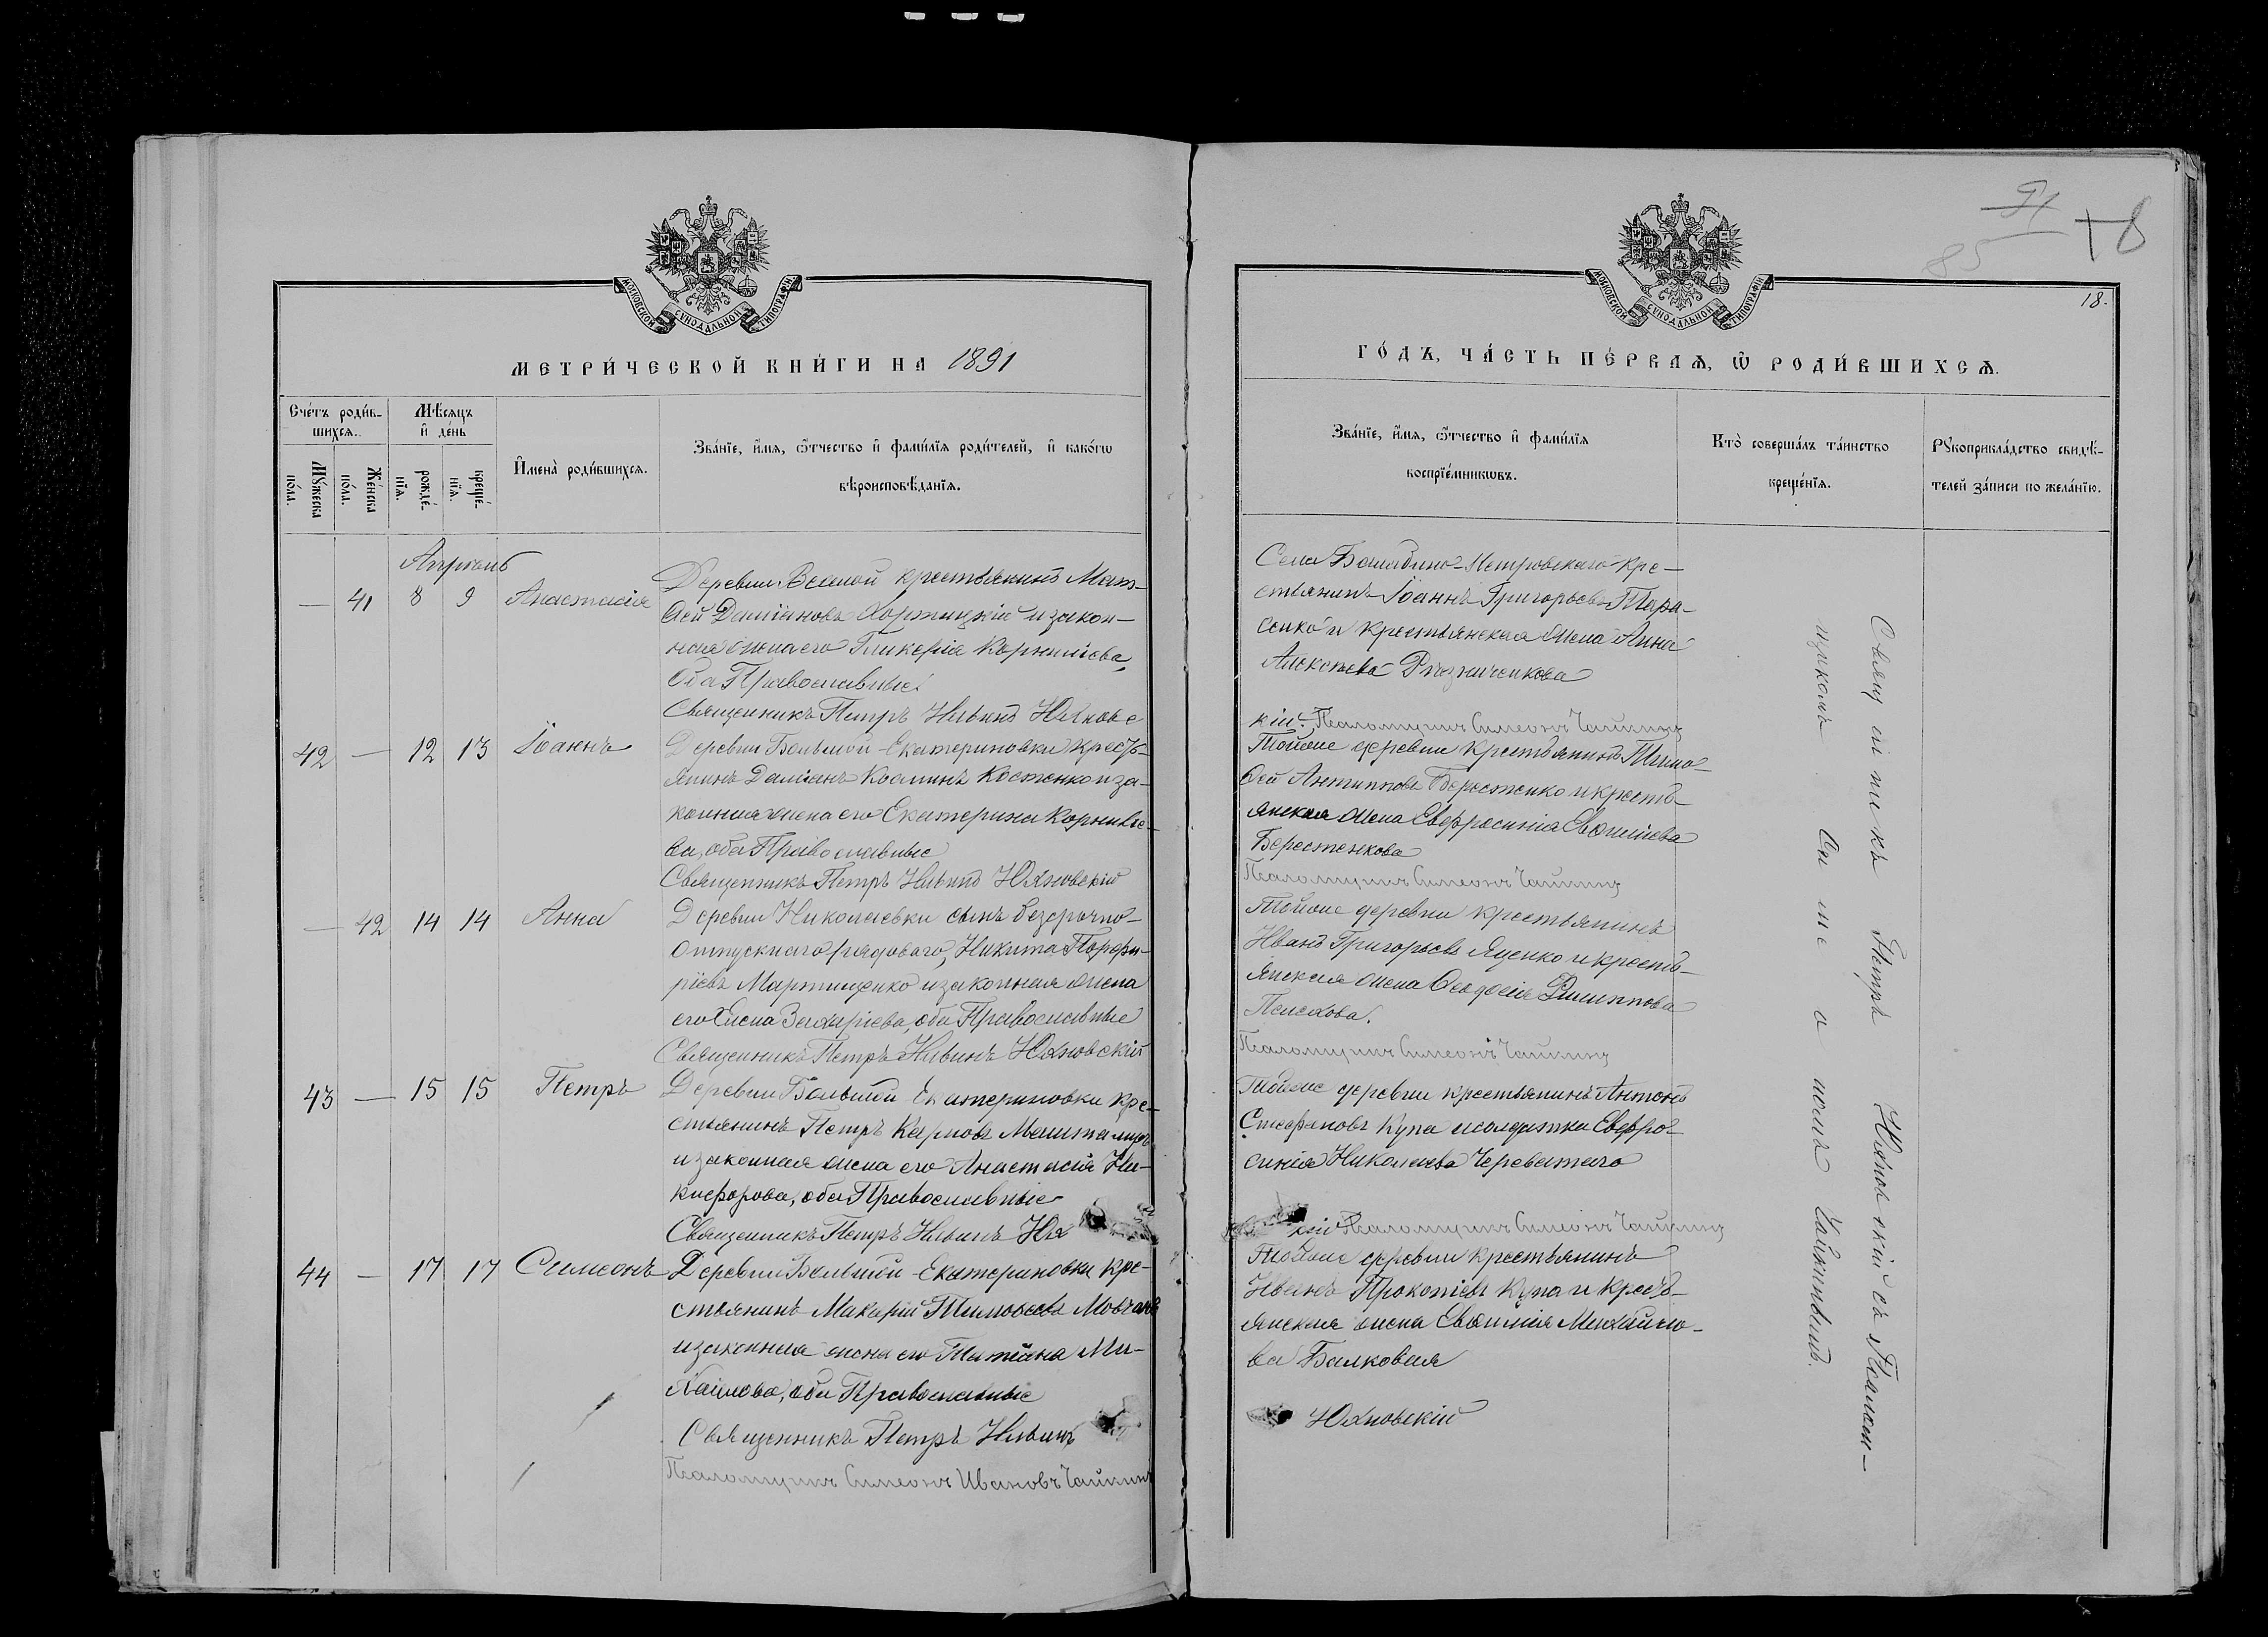 МОСКОВСКОЙ СУНОДАЛЬНОЙ ТИПОГРАФІИ
МЕТРИ́ЧЕСКОЙ КНИ́ГИ НА 1891
Сче́тъ роди́в-
шихся.
Мѣ́сяцъ
и҆ де́нь
Мꙋ́жеска
по́ла.
Же́нска
по́ла.
рожде́-
нїѧ.
креще́-
нїѧ.
И҆мена̀ роди́вшихся.
Зва́нїе, и҆́мѧ, ѻ҆́тчество и҆ фами́лїѧ роди́телей, и҆ како́гѡ
вѣроисповѣ́данїѧ.
Апрѣль
— 41 8 9 Анастасія
Деревни Веселой крестьянинъ Мат-
ѳей Даміановъ Хортицкій и закон-
ная жена его Гликерія Корниліева,
Оба Православные.
Священникъ Петръ Ильинъ Юхнове
42 — 12 13 Іоаннъ
Деревни Большой-Екатериновки кресть-
янинъ Даміанъ Косминъ Костенко и за-
конная жена его Екатерина Корниліе-
ва, оба Православные
Священникъ Петръ Ильинъ Юхновскій
— 42 14 14 Анна
Деревни Николаевки сынъ безсрочно-
отпускнаго рядоваго, Никита Порфи-
ріевъ Мартыщенко и законная жена
его Елена Захаріева, оба Православные
Священникъ Петръ Ильинъ Юхновскій
43 — 15 15 Петръ
Деревни Большой Екатериновки кре-
стьянинъ Петръ Карповъ
и законная жена его Анастасія Ни-
кифорова, оба Православные
Священникъ Петръ Ильинъ Юх
44 — 17 17 Симеонъ
Деревни Большой-Екатериновки кре-
стьянинъ Макарій Тимоѳеевъ Мовчанъ
и законная жена его Татіана Ми-
хаилова, оба Православные
Священникъ Петръ Ильинъ
Псаломщикъ Симеонъ Ивановъ Чайкинъ
91
85
18
18.
МОСКОВСКОЙ СУНОДАЛЬНОЙ ТИПОГРАФІИ
ГО́ДЪ, ЧА́СТЬ ПЕ́РВАѦ, Ѡ҆ РОДИ́ВШИХСѦ.
Зва́нїе, и҆́мѧ, ѻ҆́тчество и҆ фами́лїѧ
воспрїе́мникѡвъ.
Кто̀ соверша́лъ та́инство
креще́нїѧ.
Рꙋкоприкла́дство свидѣ́-
телей за́писи по жела́нїю.
Села Башадино-Петровскаго кре-
стьянинъ Іоаннъ Григорьевъ Тара-
сенко и крестьянская жена Анна
Алексѣева Рѣзниченкова
кій. Псаломщикъ Симеонъ Чайкинъ
Тойже деревни крестьянинъ Тимо-
ѳей Антиповъ Берестенко и кресть-
янская жена Евфросинія Евѳиміева
Берестенкова
Псаломщикъ Симеонъ Чайкинъ
Тойже деревни крестьянинъ
Иванъ Григорьевъ Яценко и кресть-
янская жена Ѳеодосія Филиппова
Псаломщикъ Симеонъ Чайкинъ
Тойже деревни крестьянинъ Антонъ
Стефановъ Купа и солдатка Евфро-
синія Николаева Череватаго
кій Псаломщикъ Симеонъ Чайкинъ
Тойже деревни крестьянинъ
Иванъ Прокопіевъ Купа и кресть-
янская жена Евѳимія Михайло-
ва Балковая
Юхновскій
Священникъ Петръ Юхновскій съ Псалом-
щикомъ Симеономъ Чайкинымъ.